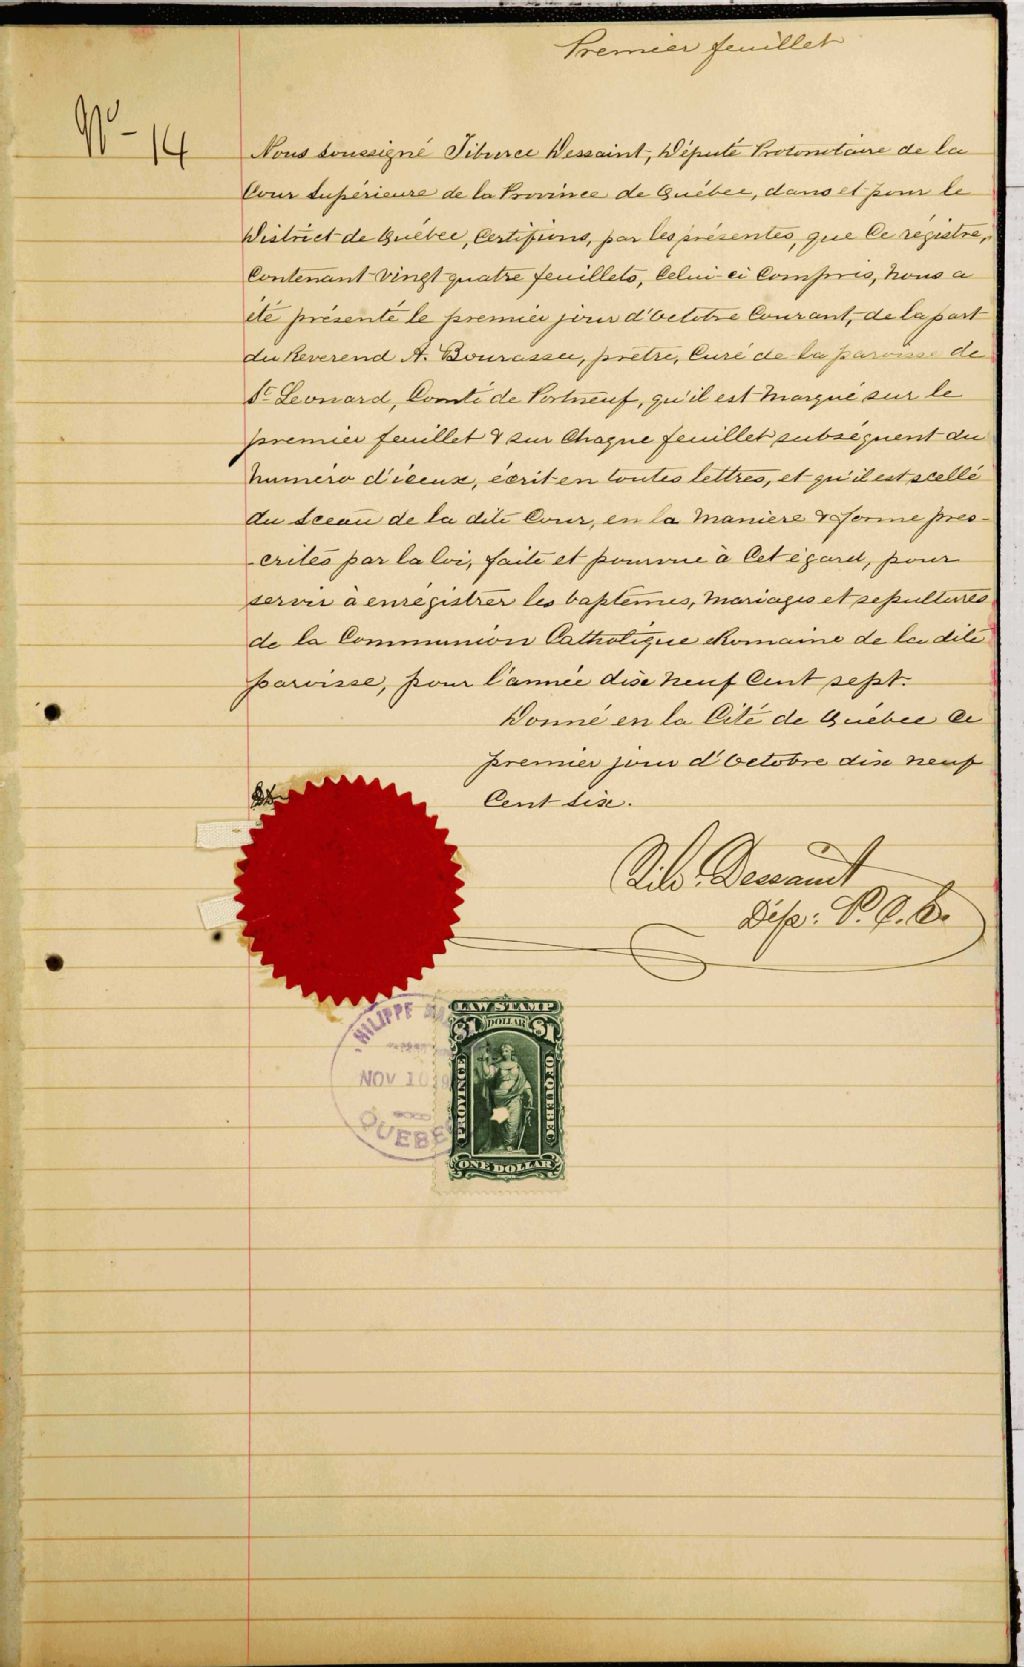 Premier feuillet
No - 14
Nous soussigné Tiburce Dessaint, Député Protonotaire de la
Cour Supérieure de la Province de Québec, dans et pour le
District de Québec, Certifions, par les présentes, que Ce régistre,
Contenant vingt quatre feuillets, Celui-ci Compris, Nous a
été présenté le premier jour d'Octobre Courant, de la part
du Reverend A. Bourassa, prêtre, Curé de la paroisse de
St Leonard, Comté de Portneuf, qu'il est Marqué sur le
premier feuillet & sur Chaque feuillet subséquent du
Numéro d'iceux, écrit en toutes lettres, et qu'il est scellé
du Sceau de la dite Cour, en la Manière & forme pres-
-crites par la loi, faite et pourvue à Cet égard, pour
servir à enrégistrer les baptêmes, Mariages et sepultures
de la Communion Catholique Romaine de la dite
paroisse, pour l'année dix Neuf Cent sept.
Donné en la Cité de Québec Ce
premier jour d'Octobre dix neuf
Cent Six.
Tib. Dessaint
Dép: P.C.S.
PHILIPPE
NOV 10
QUEBEC
LAW STAMP
$1 DOLLAR $1
PROVINCE OF QUEBEC
ONE DOLLAR